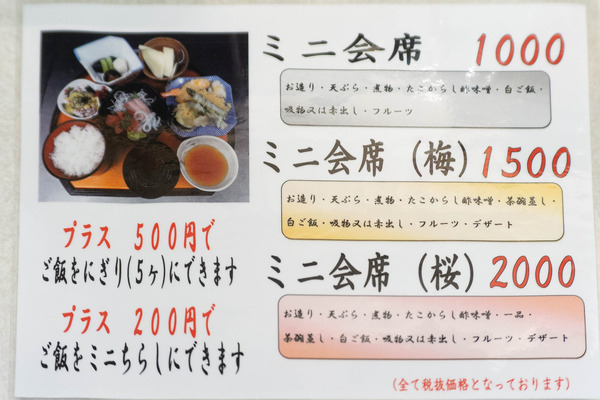 ミニ会席 1000
お造り・天ぷら・煮物・たこからし酢味噌・白ご飯・
吸物又は赤出し・フルーツ
ミニ会席(梅)1500
お造り・天ぷら・煮物・たこからし酢味噌・茶碗蒸し・
白ご飯・吸物又は赤出し・フルーツ・デザート
ミニ会席(桜)2000
お造り・天ぷら・煮物・たこからし酢味噌・一品・
茶碗蒸し・白ご飯・吸物又は赤出し・フルーツ・デザート
プラス 500円で
ご飯をにぎり(5ヶ)にできます
プラス 200円で
ご飯をミニちらしにできます
(全て税抜価格となっております)